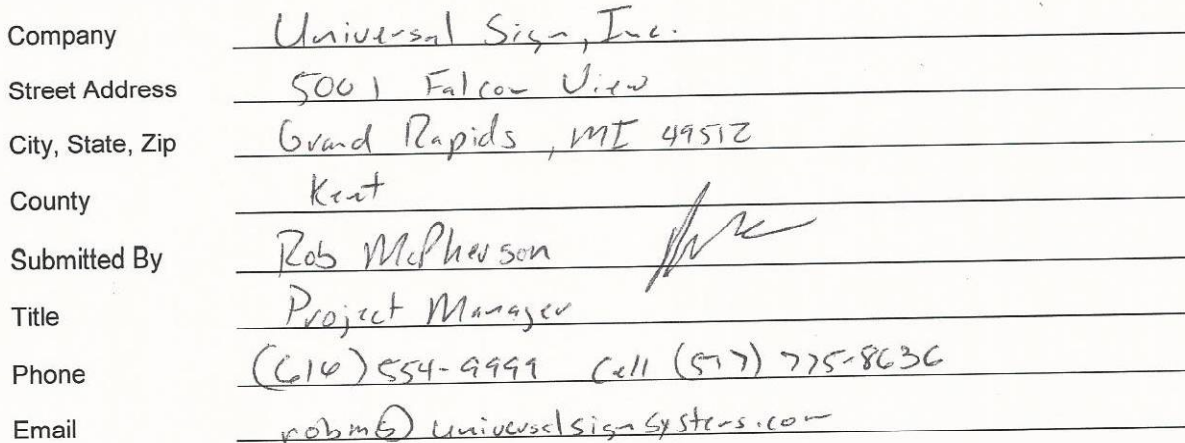 Company Universal Sign, Inc.
Street Address 5001 Falcon View
City, State, Zip Grand Rapids, MI 49512
County Kent
Submitted By Rob McPherson
Title Project Manager
Phone (616) 554-9999 Cell (517) 775-8636
Email robm@universalsignsystems.com